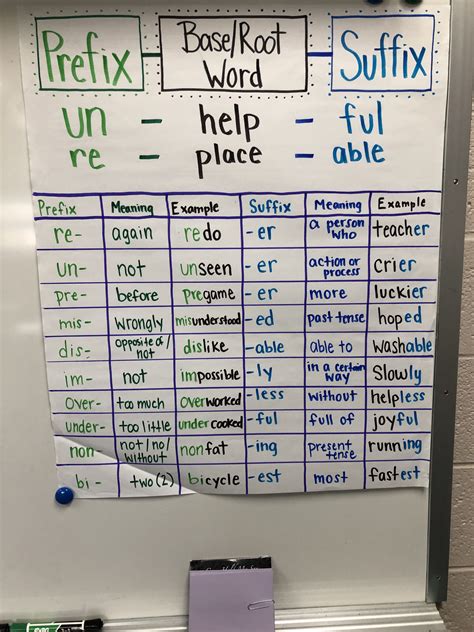 Prefix — Base/Root Word — Suffix
un - help - ful
re - place - able
Prefix Meaning Example Suffix Meaning Example
re- again redo -er a person who teacher
un- not unseen -er action or process crier
pre- before pregame -er more luckier
mis- wrongly misunderstood -ed past tense hoped
dis- opposite of/not dislike -able able to washable
im- not impossible -ly in a certain way Slowly
over- too much overworked -less without helpless
under- too little undercooked -ful full of joyful
non- not/no/without nonfat -ing present tense running
bi- two(2) bicycle -est most fastest